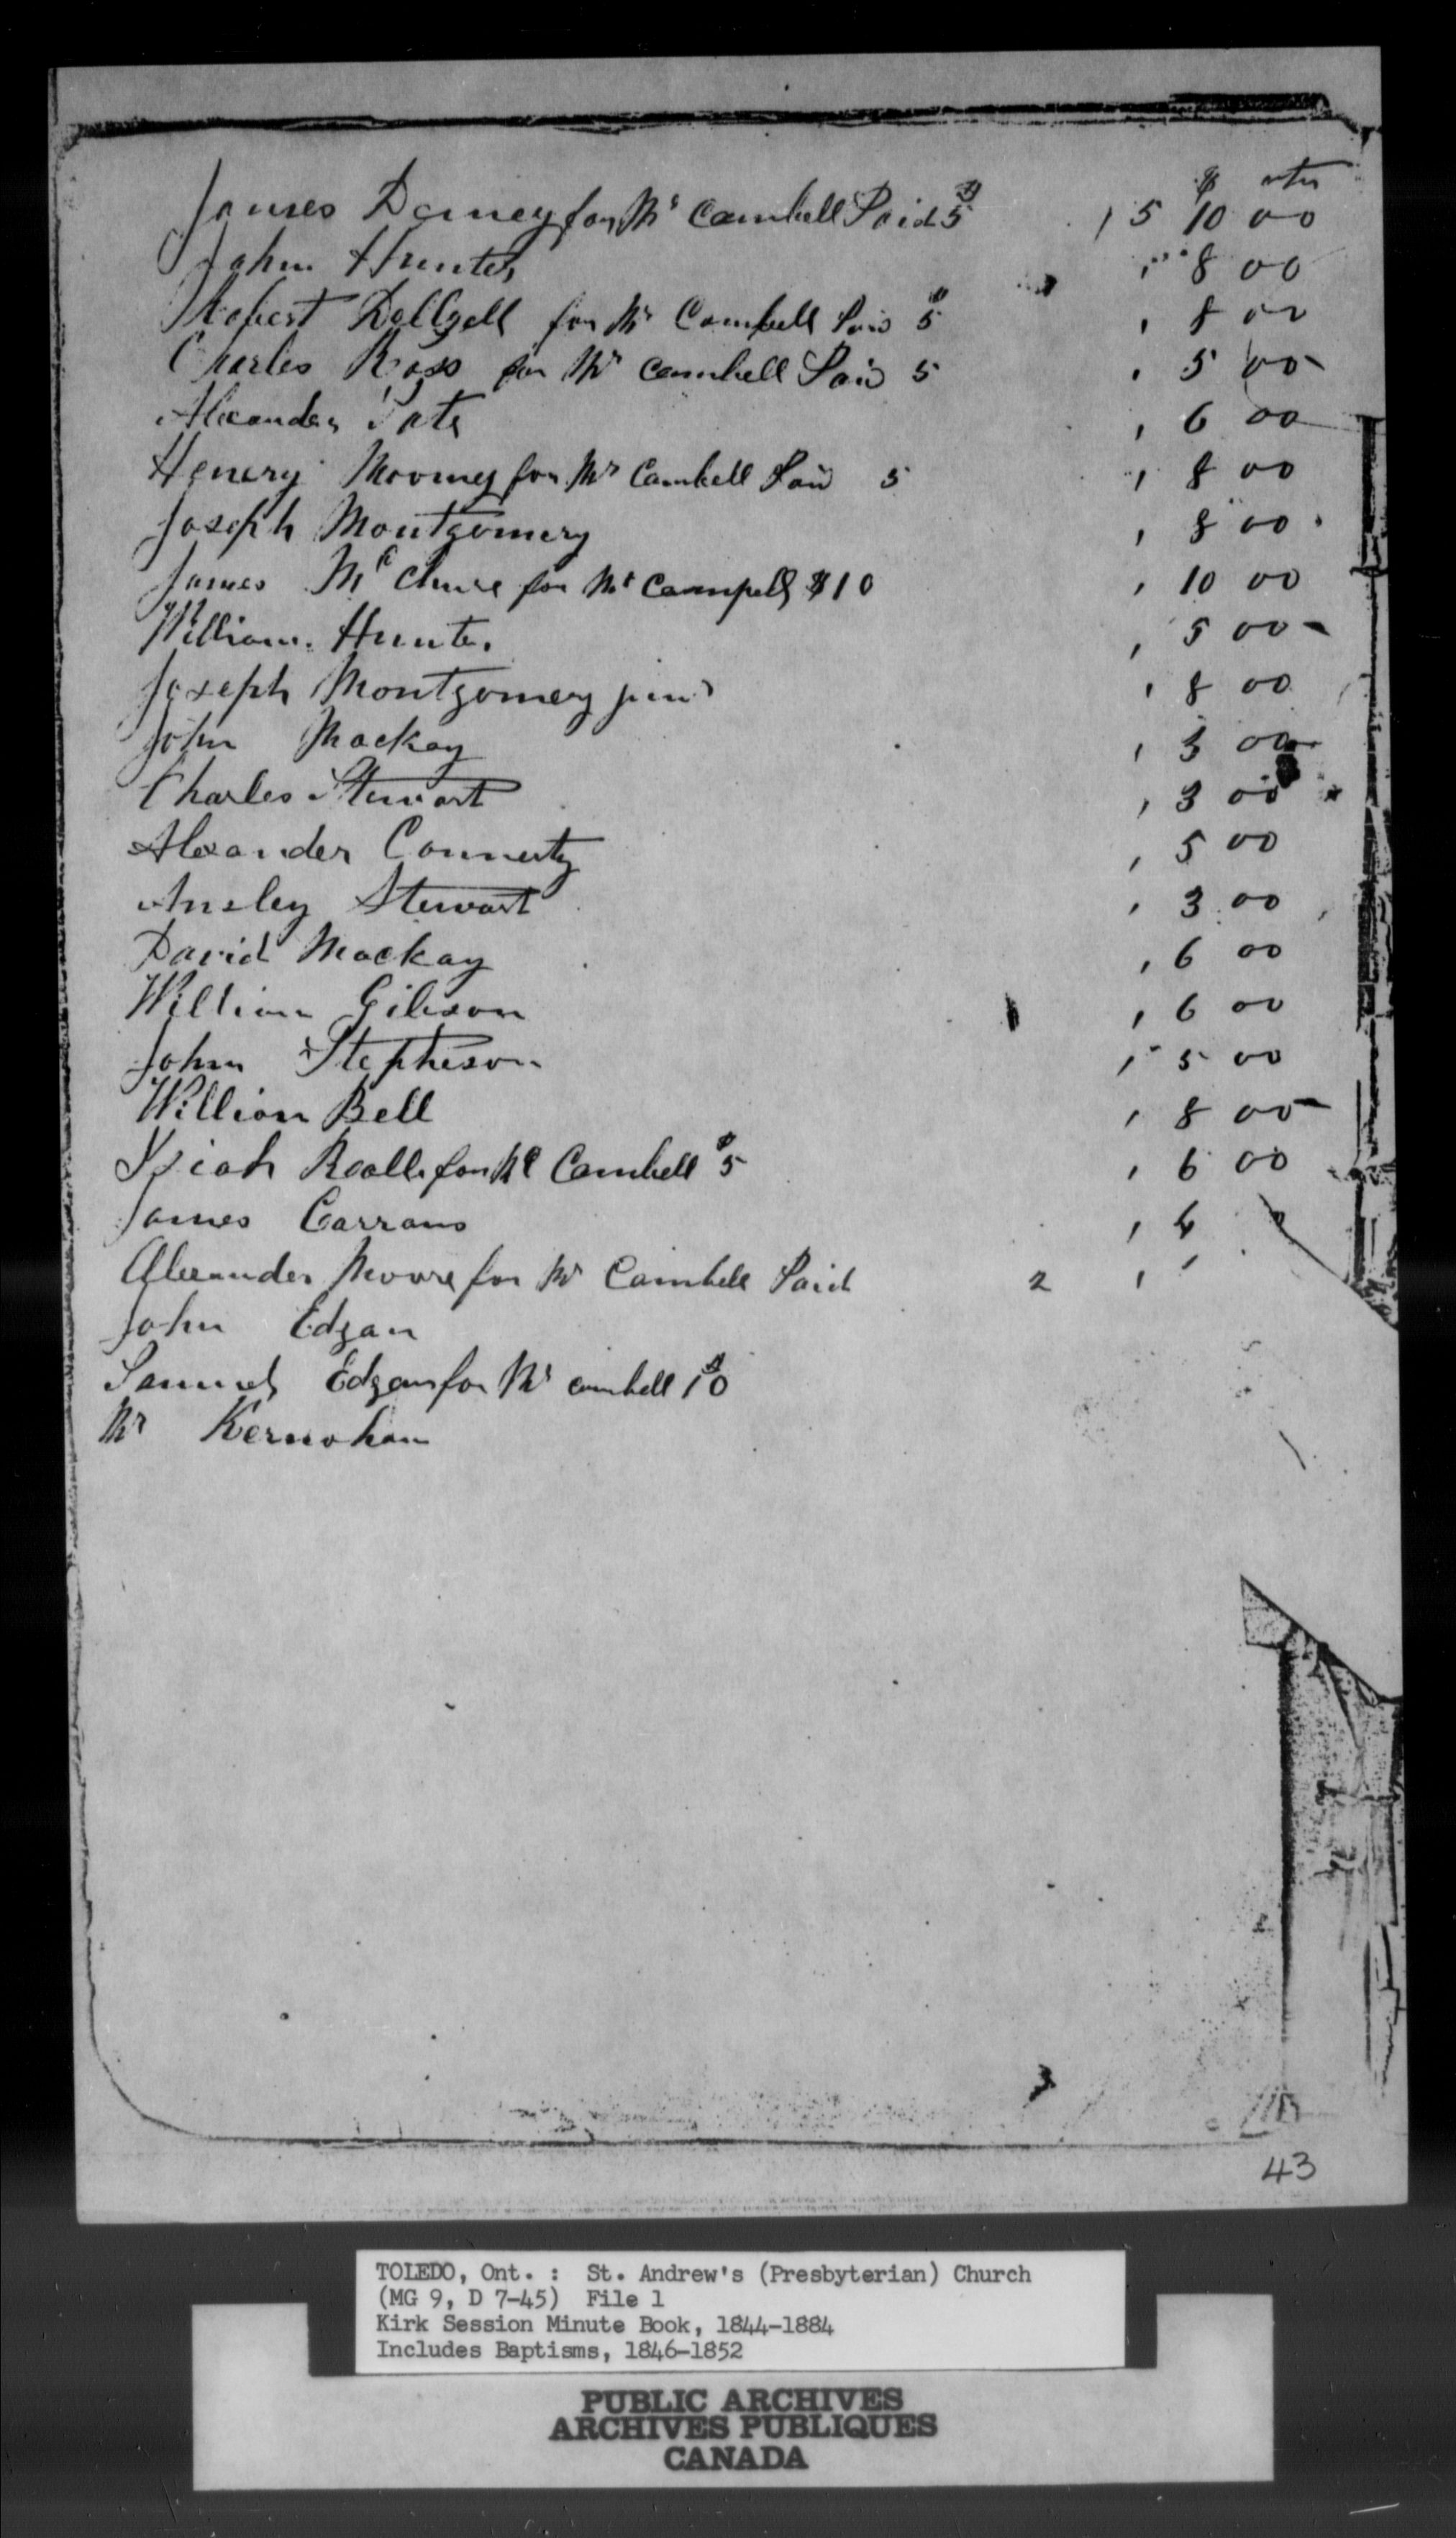 $ cts
James Darney for Mr Cambell Paid $5 , 5 10 00
John Hunter , 8 00
Robert Dellzell for Mr Cambell Paid $5 , 8 00
Charles Ross for Mr Cambell Paid 5 , 5 00
Alexander Pate , 6 00
Henery Mooney for Mr Cambell Paid 5 , 8 00
Joseph Montgomery , 8 00
James McClure for Mr Campell $10 , 10 00
William Hunter , 5 00
Joseph Montgomery junr , 8 00
John Mackay , 3 00
Charles Stewart , 3 00
Alexander Connerty , 5 00
Ansley Stewart , 3 00
David Mackay , 6 00
William Gibson , 6 00
John Stepheson , 5 00
William Bell , 8 00
Isiah Realls for Mr Cambell $5 , 6 00
James Carrans , 4
Alexander Moore for Mr Cambell Paid 2 ,
John Edgar
Samuel Edgar for Mr Cambell $10
Mr Kernohan
43
TOLEDO, Ont. : St. Andrew's (Presbyterian) Church
(MG 9, D 7-45) File 1
Kirk Session Minute Book, 1844-1884
Includes Baptisms, 1846-1852
PUBLIC ARCHIVES
ARCHIVES PUBLIQUES
CANADA